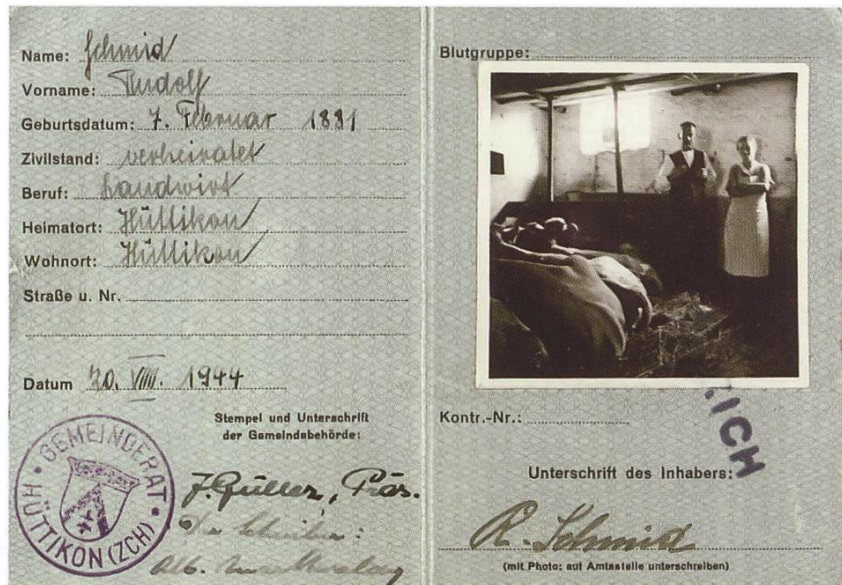 Name: Schmid
Vorname: Rudolf
Geburtsdatum: 7. Februar 1881
Zivilstand: verheiratet
Beruf: Landwirt
Heimatort: Hüttikon
Wohnort: Hüttikon
Straße u. Nr.
Datum 20. VIII. 1944
Stempel und Unterschrift
der Gemeindebehörde:
GEMEINDERAT
HÜTTIKON (ZCH)
J. Güller, Präs.
Der Schreiber:
Alb.
Blutgruppe:
RICH
Kontr.-Nr.:
Unterschrift des Inhabers:
R. Schmid
(mit Photo: auf Amtsstelle unterschreiben)